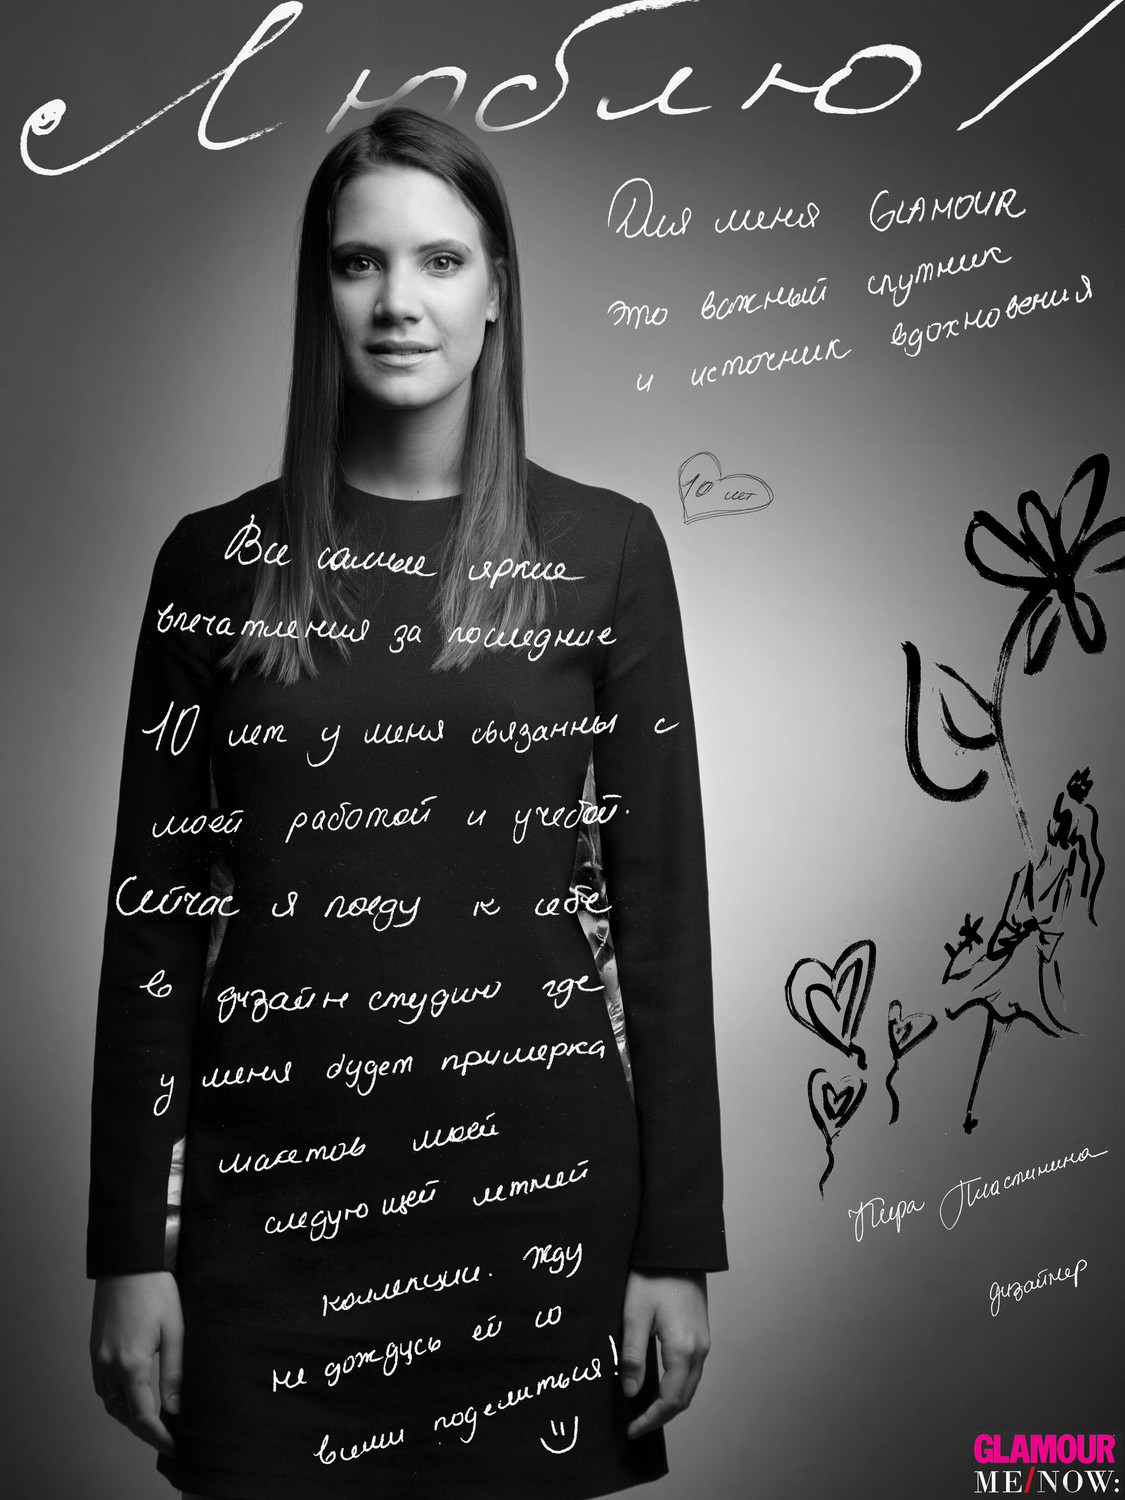 Люблю!
Для меня GLAMOUR
это важный спутник
и источник вдохновения
10 лет
Все самые яркие
впечатления за последние
10 лет у меня связанны с
моей работой и учебой.
Сейчас я поеду к себе
в дизайн студию где
у меня будет примерка
макетов моей
следующей летней
коллекции. Жду
не дождусь ей со
всеми поделиться!
Кира Пластинина
дизайнер
GLAMOUR
ME/NOW: